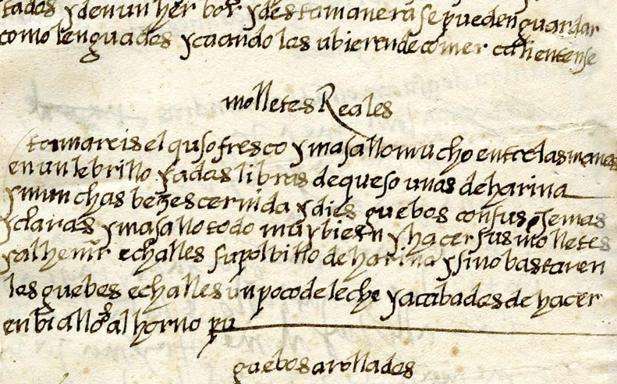 tados y den un herbor y desta manera se pueden guardar
como lenguados y cuando las ubieren de comer calientense
molletes Reales
tomareis el queso fresco y masallo mucho entre las manos
en un lebrillo y a dos libras de queso unas de harina
y munchas bezes cernida y dies guebos con sus yemas
y claras y masallo todo muy bien y hacer sus molletes
y al henir echalles su polbillo de harina y si no bastaren
los guebos echalles un poco de leche y acabados de hacer
enbiallos al horno
guebos arollados